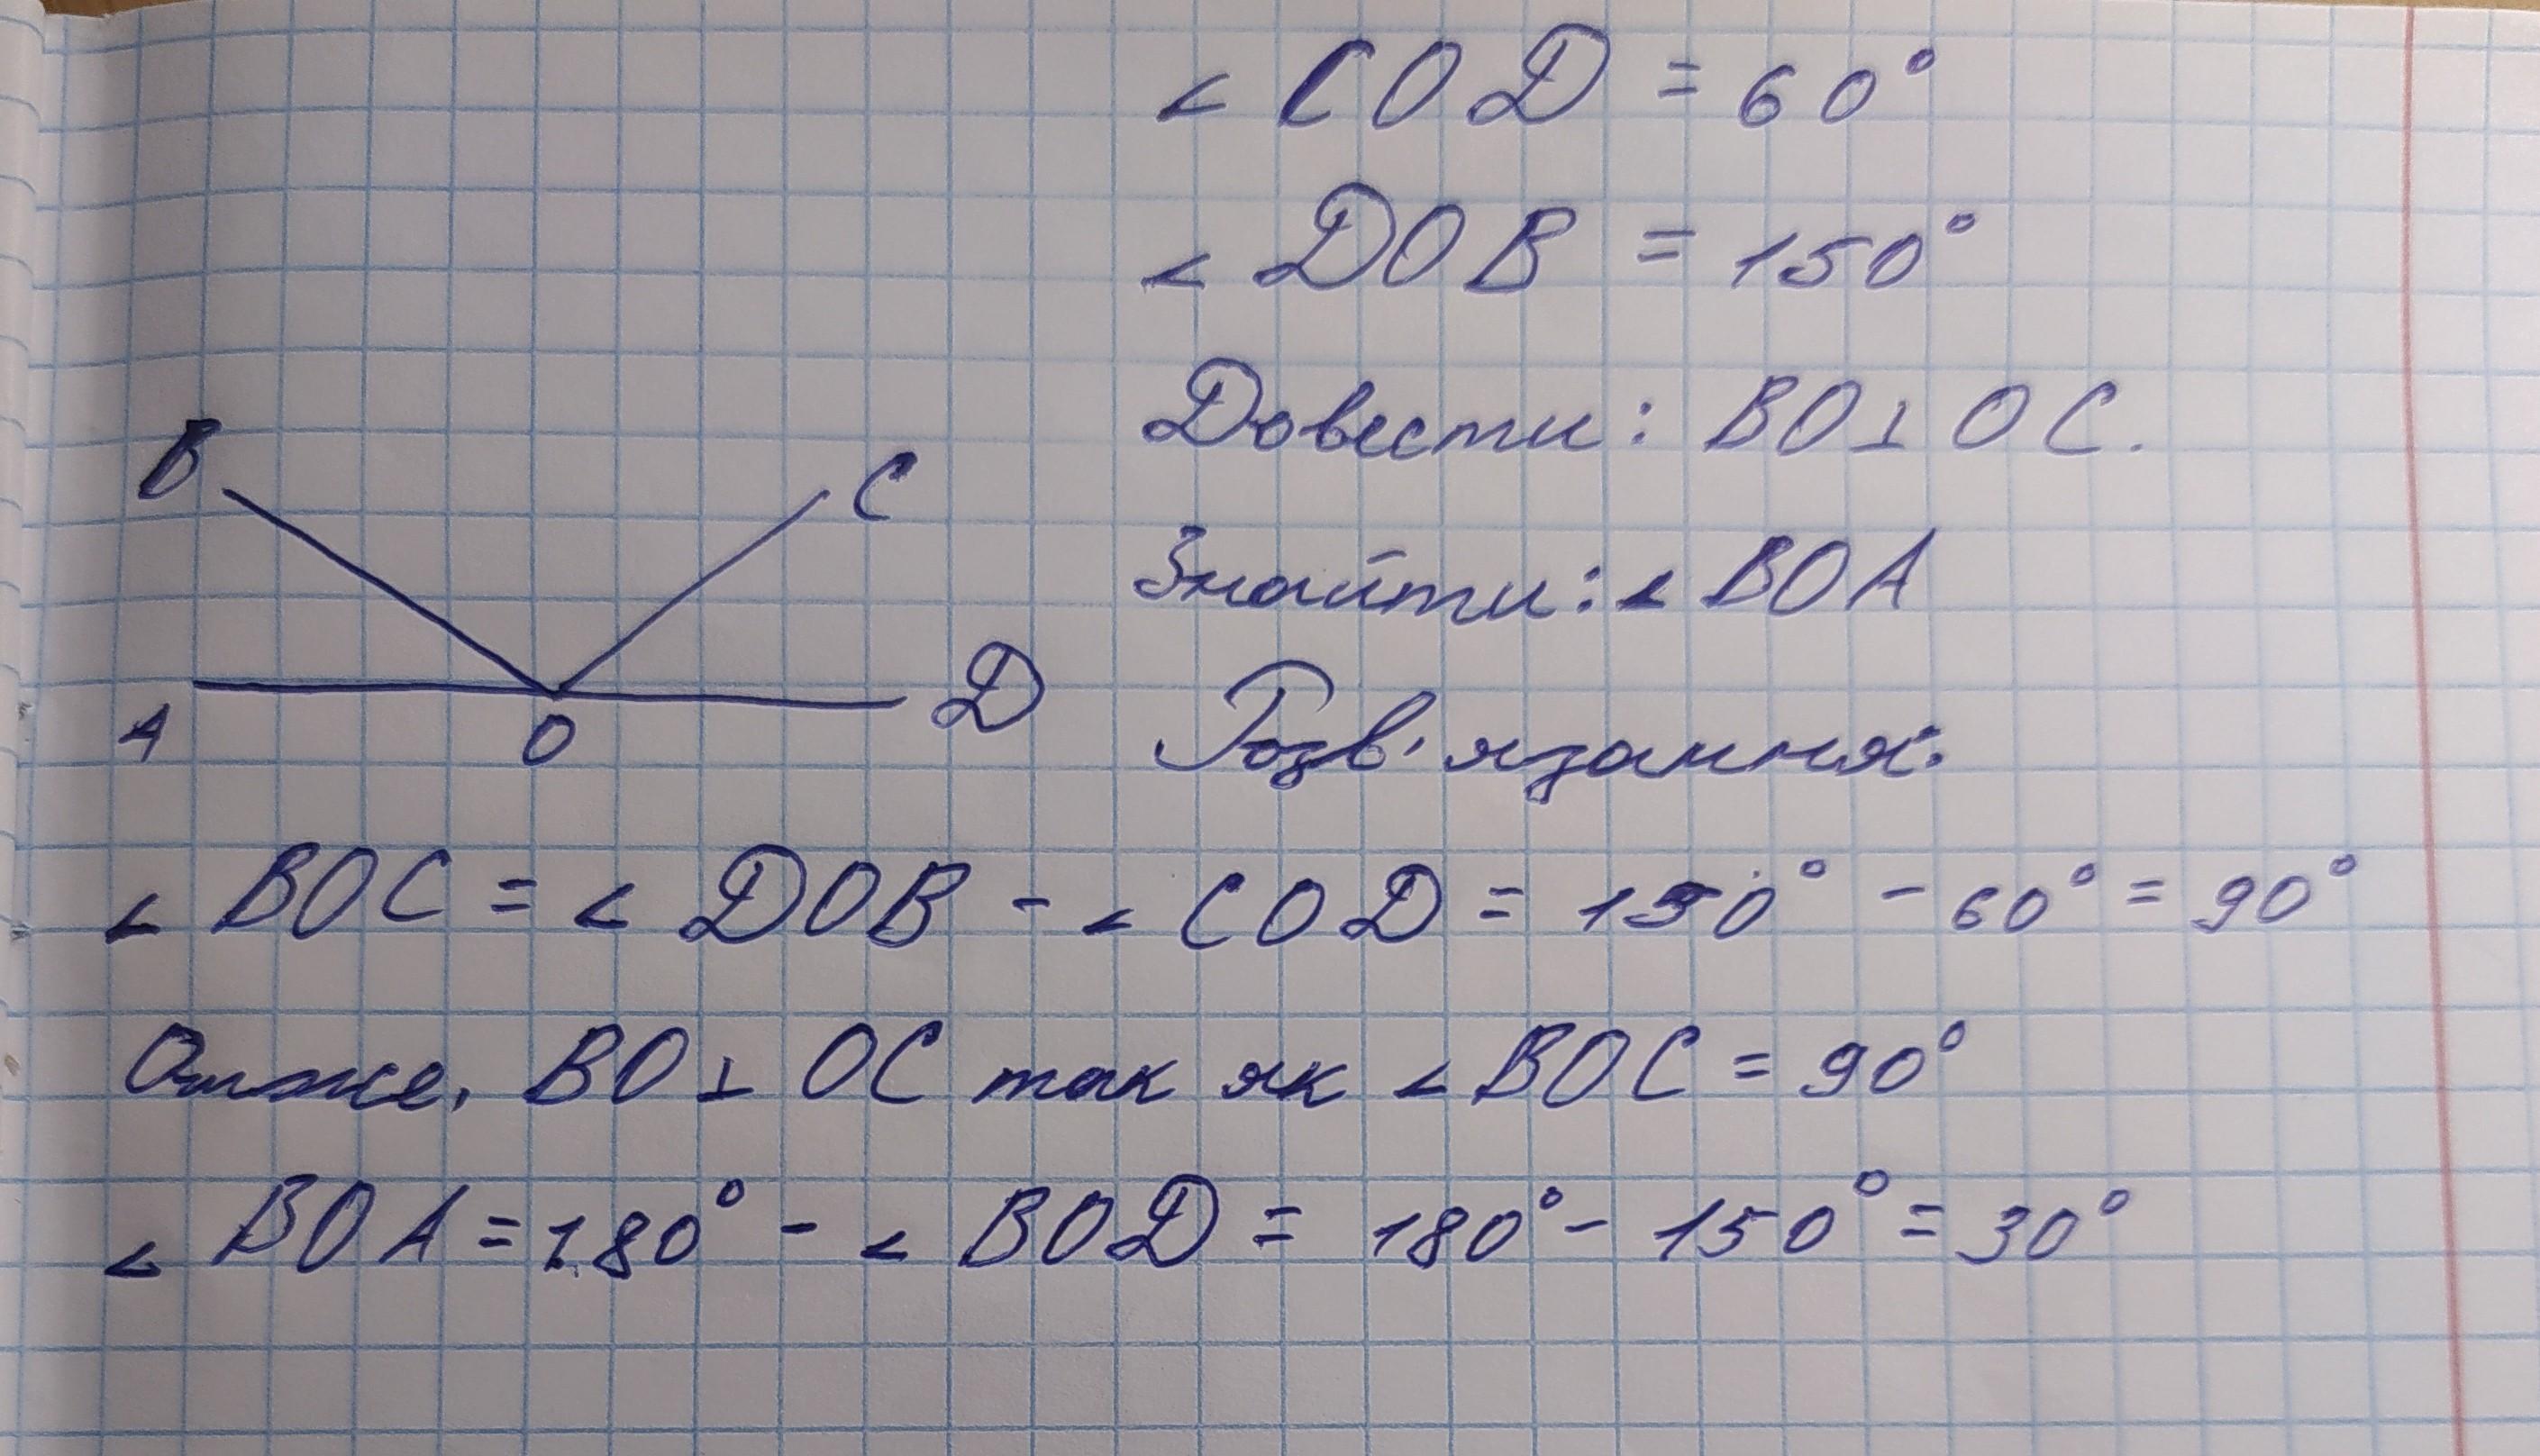 ∠ COD = 60°
∠ DOB = 150°
Довести: BO⊥OC.
Знайти: ∠ BOA
Розв'язання:
B
C
A
O
D
∠ BOC = ∠ DOB - ∠ COD = 150° - 60° = 90°
Отже, BO⊥OC так як ∠ BOC = 90°
∠ BOA = 180° - ∠ BOD = 180° - 150° = 30°